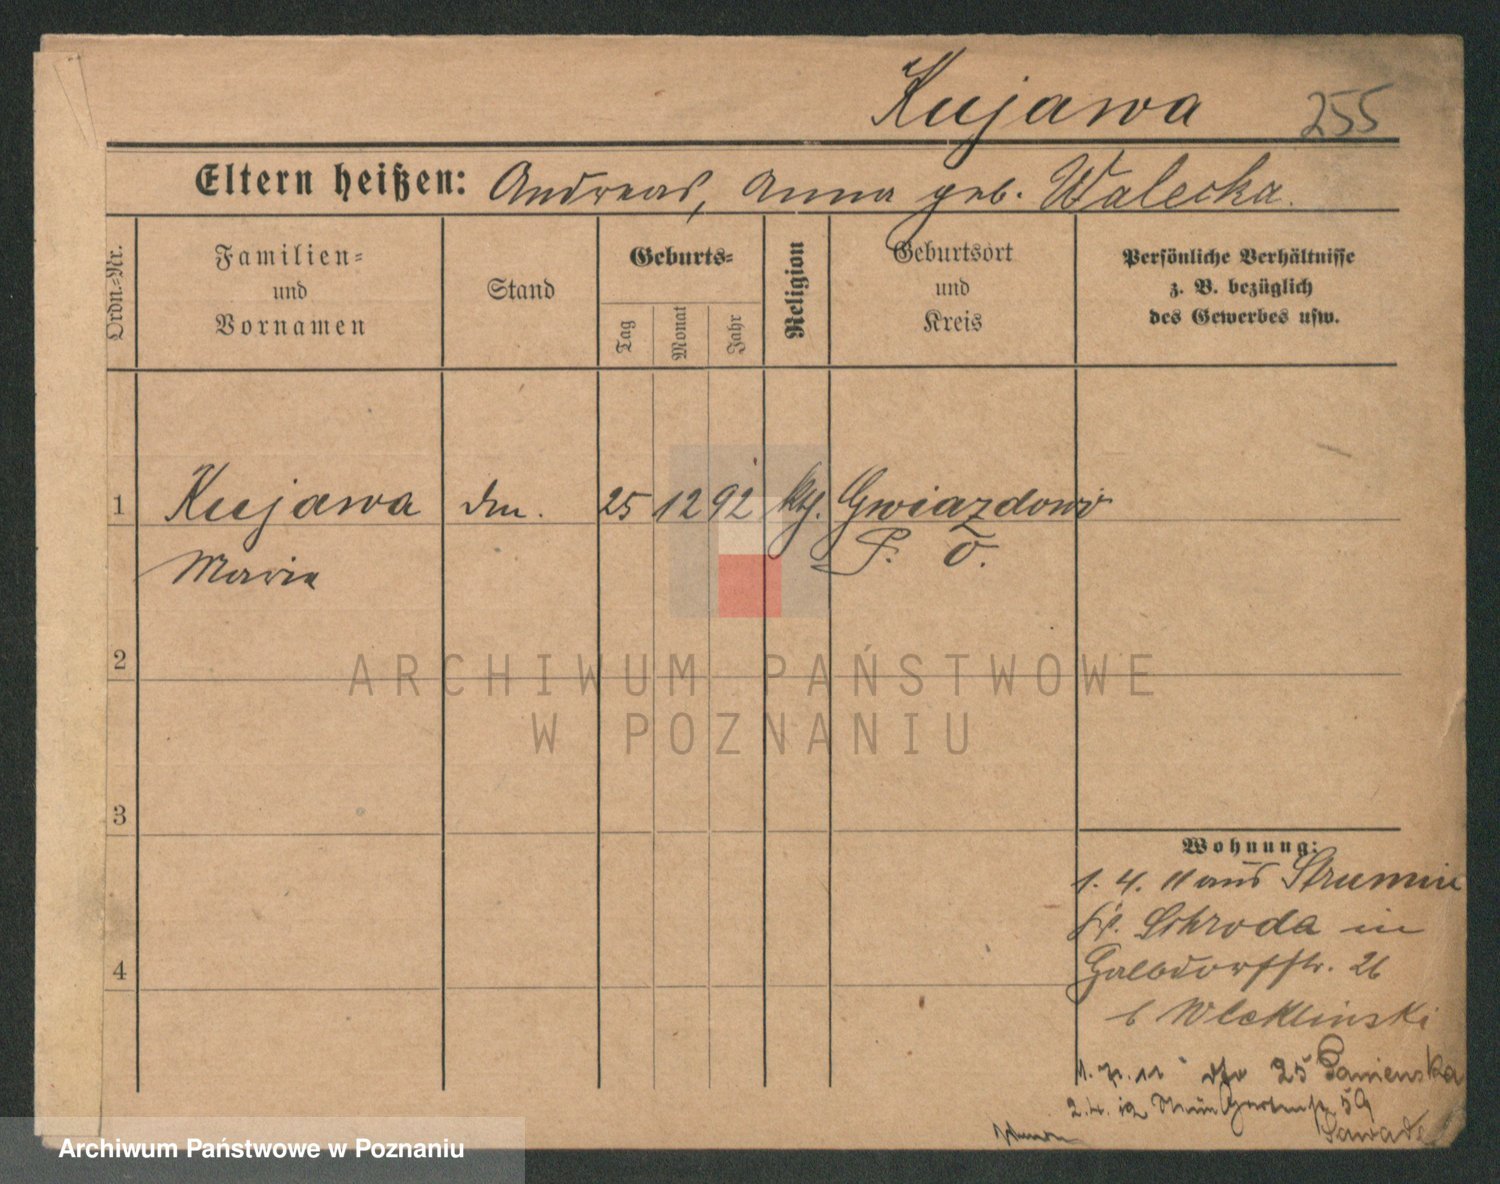 Kujawa 255
Eltern heißen: Andreas, Anna geb. Walecka.
Ordn.-Nr.
Familien- und Vornamen
Stand
Geburts-
Tag
Monat
Jahr
Religion
Geburtsort und Kreis
Persönliche Verhältnisse
z. B. bezüglich
des Gewerbes usw.
1 Kujawa 25 12 92 kth. Gwiazdowo
Maria P. O.
2
ARCHIWUM PAŃSTWOWE
W POZNANIU
3
Wohnung:
1. 4. 11 aus
Schroda in
4
26
b
1. 7. 11 25 Panienska
2. 4. 12 59
Archiwum Państwowe w Poznaniu